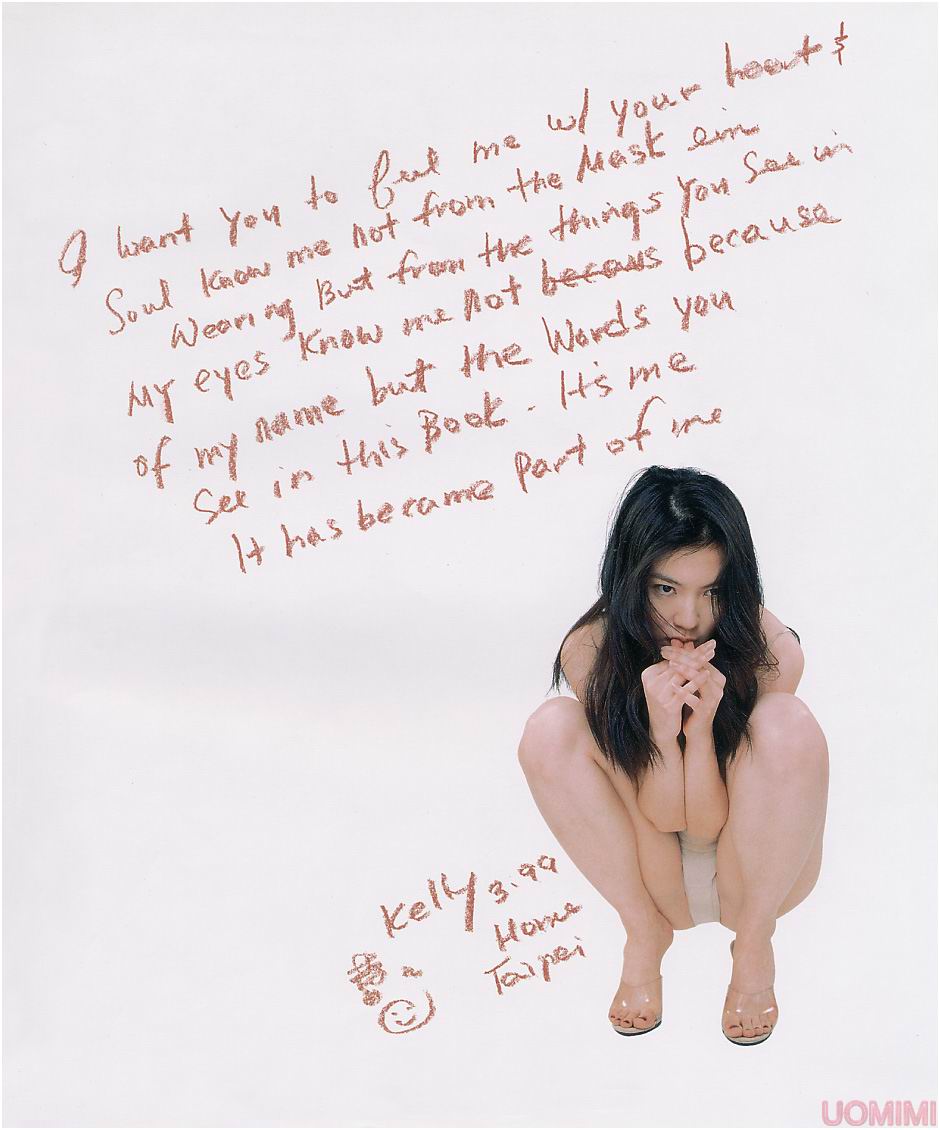 I want you to feel me w/ your heart &
Soul know me not from the Mask em
Wearing But from the things you see in
My eyes know me not becaus because
of my name but the Words you
See in this Book. It's me
It has became part of me
Kelly 3.99
Home
Taipei
UOMIMI